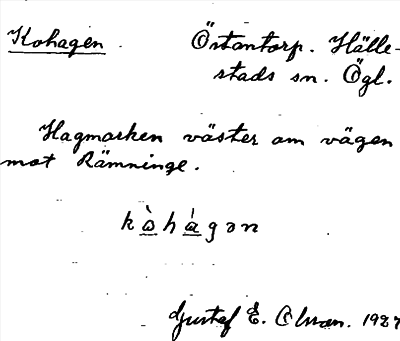 Kohagen. Östantorp. Hälle-
stads sn. Ögl.
Hagmarken väster om vägen
mot Rämninge.
kὼhágən
Gustaf E. Olsson. 1927